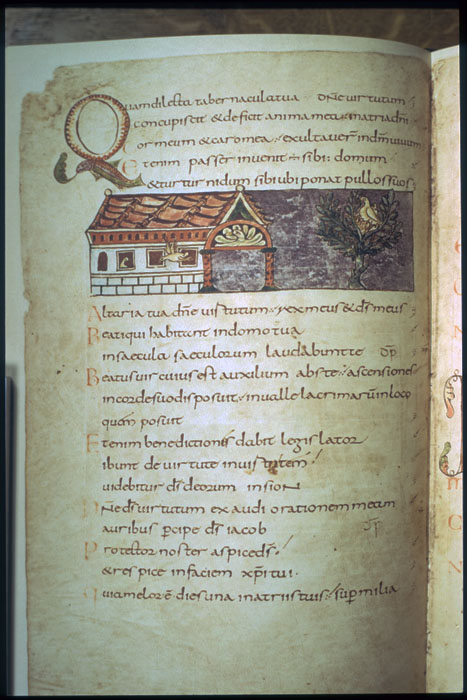 Quam dilecta tabernacula tua dñe virtutum
Concupiscit & deficit anima mea in atria dñi
Cor meum & caro mea exultaver̄ in dm̄ vivum
Etenim passer invenit sibi domum
& turtur nidum sibi ubi ponat pullos suos
Altaria tua dñe virtutum rex meus & ds̄ meus
Beati qui habitant in domo tua
in saecula saeculorum laudabunt te
Beatus vir cuius est auxilium abs te ascensiones
in corde suo disposuit in valle lacrimarum in loco
quem posuit
Etenim benedictionē dabit legislator
ibunt de virtute in virtutem
videbitur ds̄ deorum in sion
Dñe ds̄ virtutum exaudi orationem meam
auribus ꝑcipe ds̄ iacob
Protector noster aspice ds̄
& respice in faciem xp̄i tui
Quia melior ē dies una in atriis tuis sup̄ milia